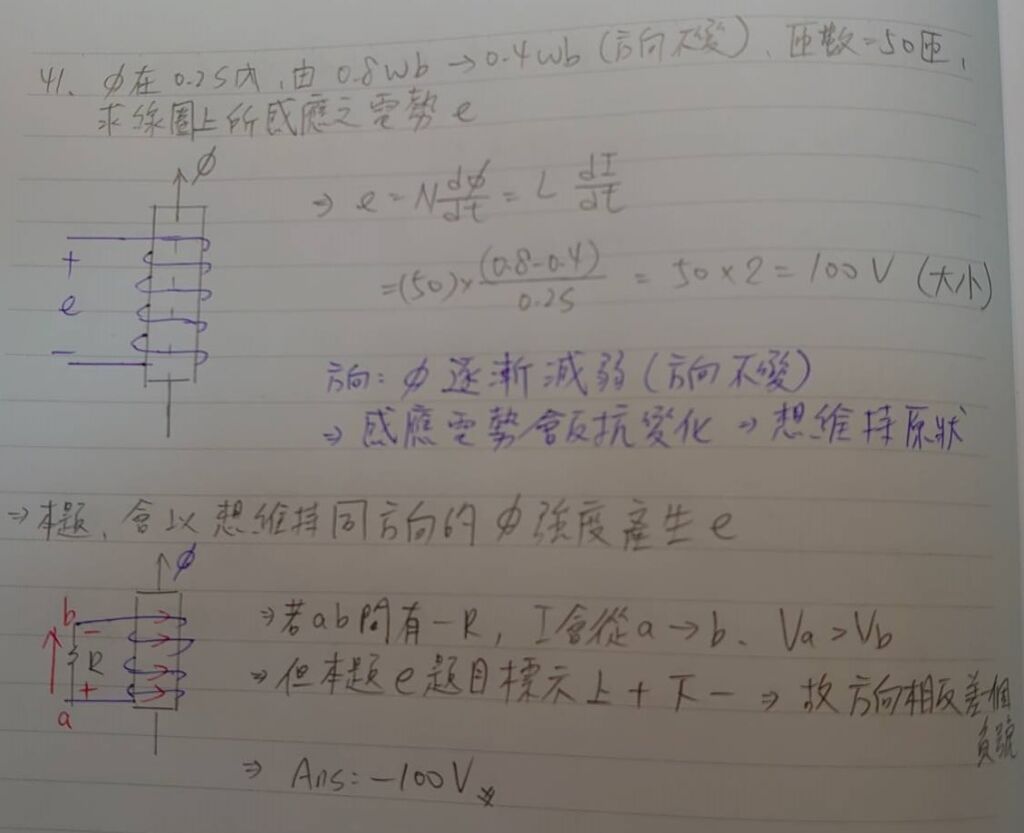 41. φ在0.2S內,由0.8wb→0.4wb(方向不變)、匝數=50匝,
求線圈上所感應之電勢e
φ
⇒ e = N dφ/dt = L dI/dt
+
e
-
=(50)×(0.8-0.4)/0.2S = 50×2 = 100V (大小)
方向: φ逐漸減弱(方向不變)
⇒ 感應電勢會反抗變化 ⇒ 想維持原狀
⇒ 本題、會以想維持同方向的φ強度產生e
φ
b
-
R
+
a
⇒若ab間有一R, I會從a→b、Va>Vb
⇒但本題e題目標示上+下- ⇒ 故方向相反差個
負號
⇒ Ans: -100V